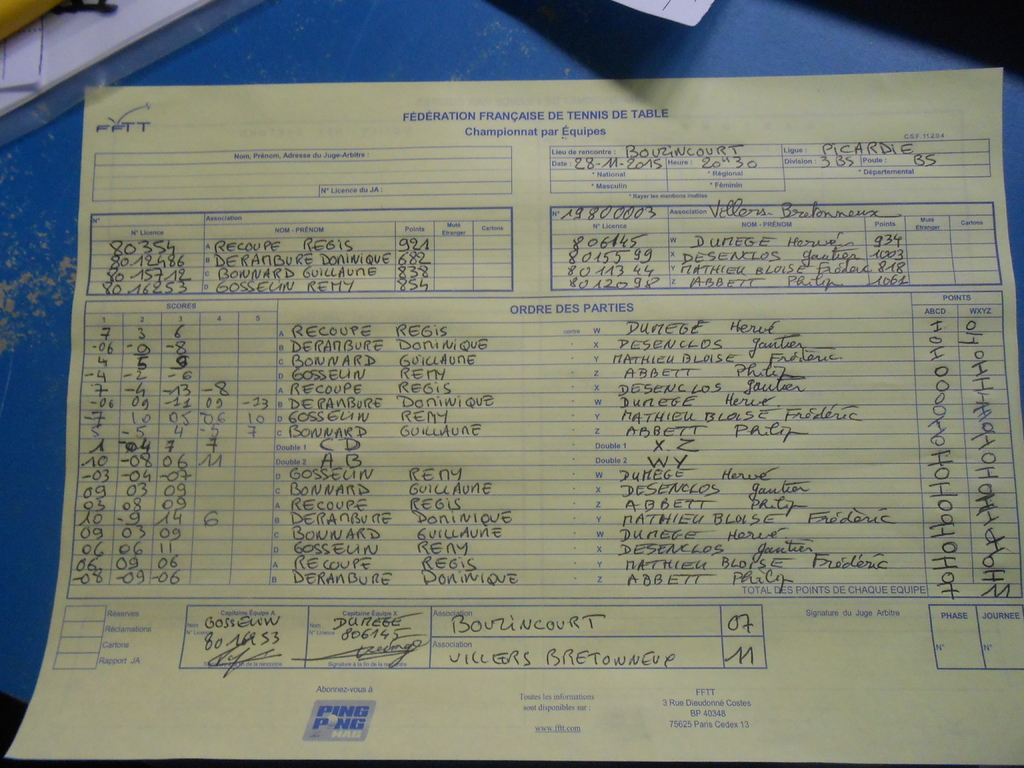 FFTT
FÉDÉRATION FRANÇAISE DE TENNIS DE TABLE
Championnat par Équipes
C.S.F. 11.2.0.4
Nom, Prénom, Adresse du Juge-Arbitre :
N° Licence du JA :
Lieu de rencontre : BOUZINCOURT Ligue : PICARDIE
Date : 28-11-2015 Heure : 20H30 Division : 3 BS Poule : BS
* National * Régional * Départemental
* Masculin * Féminin
* Rayer les mentions inutiles
N° Association
N° Licence NOM - PRÉNOM Points Muté Etranger Cartons
80354 A RECOUPE REGIS 921
8012486 B DERAMBURE DOMINIQUE 682
8015712 C BONNARD GUILLAUME 838
8016253 D GOSSELIN REMY 854
N° 19800003 Association Villers-Bretonneux
N° Licence NOM - PRÉNOM Points Muté Etranger Cartons
806145 W DUMEGE Hervé 934
8015599 X DESENCLOS gautier 1003
8011344 Y MATHIEU BLOISE Frédéric 818
8012098 Z ABBETT Philip 1061
SCORES ORDRE DES PARTIES POINTS
1 2 3 4 5 ABCD WXYZ
7 3 6 A RECOUPE REGIS contre W DUMEGE Hervé
-06 -9 -8 B DERAMBURE DOMINIQUE X DESENCLOS gautier
C BONNARD GUILLAUME Y MATHIEU BLOISE Frédéric
-4 -2 -6 D GOSSELIN REMY Z ABBETT Philip
7 -4 -13 -8 A RECOUPE REGIS X DESENCLOS gautier
-06 09 -11 09 -13 B DERAMBURE DOMINIQUE W DUMEGE Hervé
-7 10 05 06 10 D GOSSELIN REMY Y MATHIEU BLOISE Frédéric
C BONNARD GUILLAUME Z ABBETT Philip
Double 1 C D Double 1 X Z
10 -08 06 11 Double 2 A B Double 2 W Y
-03 -04 -07 D GOSSELIN REMY W DUMEGE Hervé
09 03 09 C BONNARD GUILLAUME X DESENCLOS gautier
03 08 09 A RECOUPE REGIS Z ABBETT Philip
10 -9 14 6 B DERAMBURE DOMINIQUE Y MATHIEU BLOISE Frédéric
09 03 09 C BONNARD GUILLAUME W DUMEGE Hervé
06 06 11 D GOSSELIN REMY X DESENCLOS gautier
06 09 06 A RECOUPE REGIS Y MATHIEU BLOISE Frédéric
-08 -09 -06 B DERAMBURE DOMINIQUE Z ABBETT Philip
TOTAL DES POINTS DE CHAQUE EQUIPE
Réserves
Réclamations
Cartons
Rapport JA
Capitaine Équipe A
Nom GOSSELIN
N° Licence 8016253
Capitaine Équipe X
Nom DUMEGE
N° Licence 806145
Signature à la fin de la rencontre
Association BOUZINCOURT 07
Association VILLERS BRETONNEUX 11
Signature du Juge Arbitre
PHASE JOURNEE
N° N°
Abonnez-vous à
PING PONG MAG
Toutes les informations
sont disponibles sur :
www.fftt.com
FFTT
3 Rue Dieudonné Costes
BP 40348
75625 Paris Cedex 13